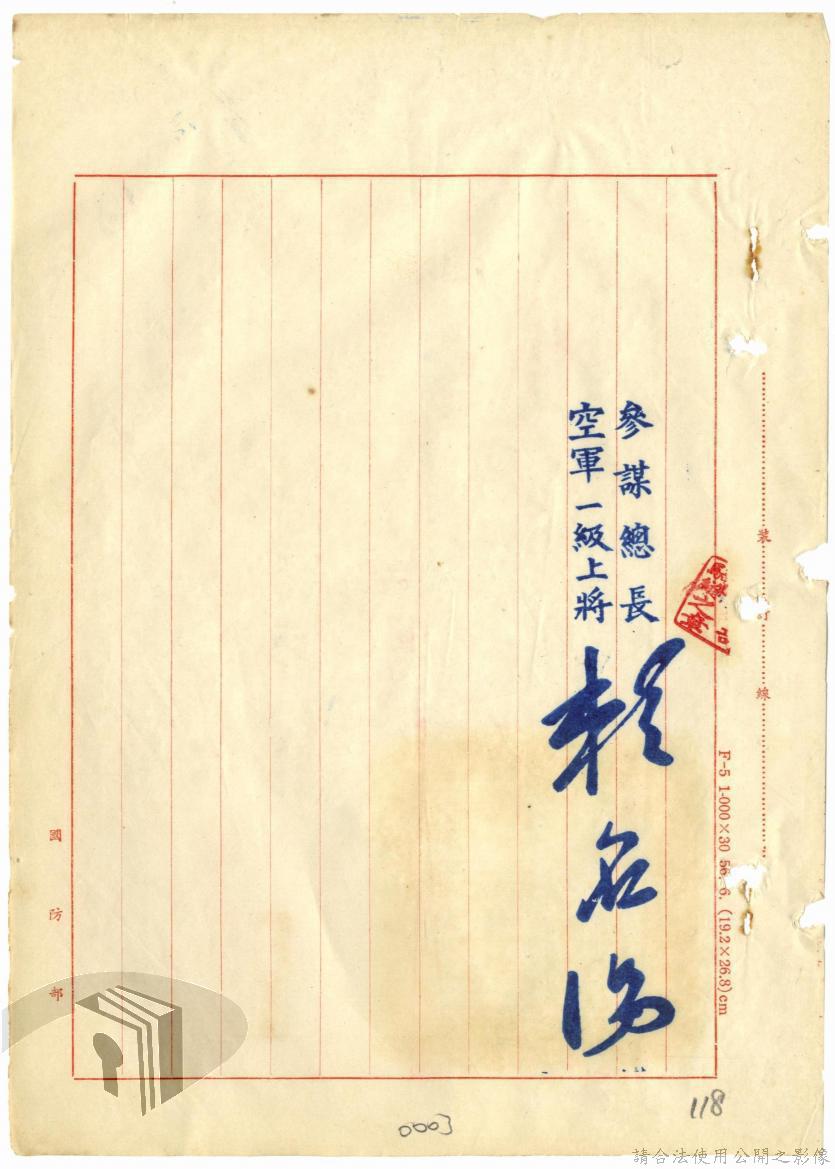 裝訂線
F-5 1-000×30 56. 6. (19.2×26.8)cm
參謀總長
空軍一級上將
賴名湯
國防部
118
0003
請合法使用公開之影像